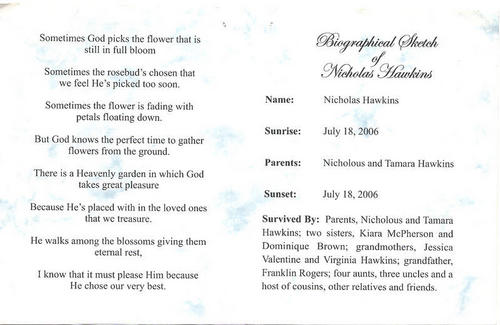 Sometimes God picks the flower that is
still in full bloom
Sometimes the rosebud's chosen that
we feel He's picked too soon.
Sometimes the flower is fading with
petals floating down.
But God knows the perfect time to gather
flowers from the ground.
There is a Heavenly garden in which God
takes great pleasure
Because He's placed with in the loved ones
that we treasure.
He walks among the blossoms giving them
eternal rest,
I know that it must please Him because
He chose our very best.
Biographical Sketch
of
Nicholas Hawkins
Name: Nicholas Hawkins
Sunrise: July 18, 2006
Parents: Nicholous and Tamara Hawkins
Sunset: July 18, 2006
Survived By: Parents, Nicholous and Tamara
Hawkins; two sisters, Kiara McPherson and
Dominique Brown; grandmothers, Jessica
Valentine and Virginia Hawkins; grandfather,
Franklin Rogers; four aunts, three uncles and a
host of cousins, other relatives and friends.